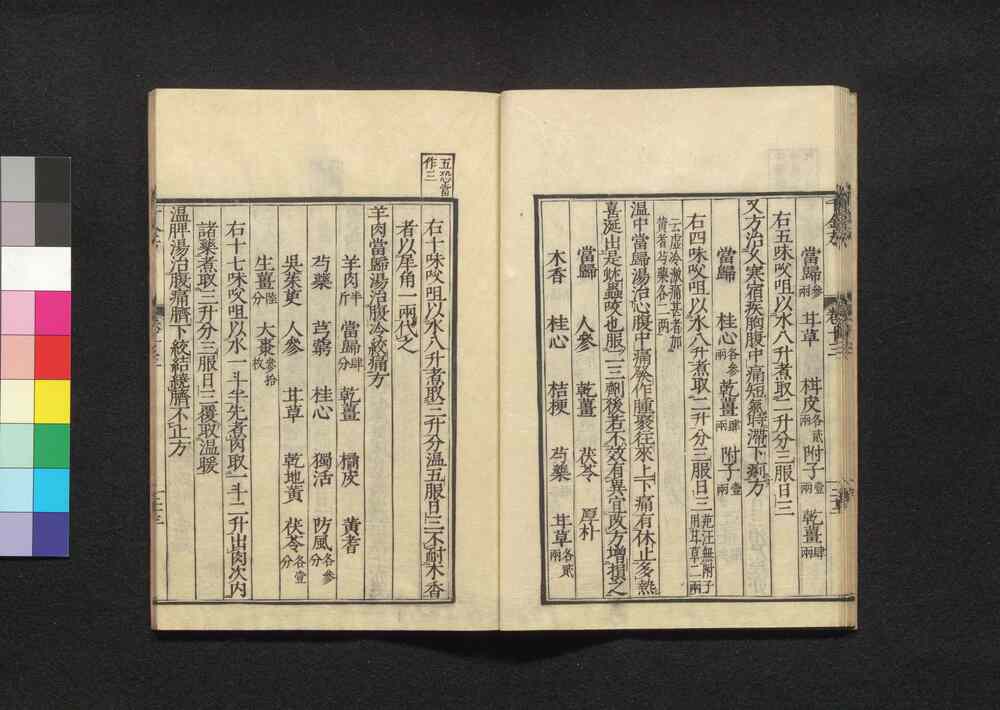 當歸參兩 甘草 柑皮各貳兩 附子壹兩 乾薑肆兩
右五味㕮咀以水八升煮取二升分三服日三
又方治久寒宿疾胸腹中痛短氣時滯下痢方
當歸 桂心各參兩 乾薑肆兩 附子壹兩
右四味㕮咀以水八升煮取二升分三服日三范汪無附子用甘草二兩
云虛冷激痛甚者加
黃耆芍藥各二兩
溫中當歸湯治心腹中痛發作腫聚往來上下痛有休止多熱
喜涎出是蚘蟲咬也服二三劑後若不效有異宜改方增損之
當歸 人參 乾薑 茯苓 厚朴
木香 桂心 桔梗 芍藥 甘草各貳兩
五恐當
作三
右十味㕮咀以水八升煮取三升分溫五服日三不耐木香
者以犀角一兩代之
羊肉當歸湯治腹冷絞痛方
羊肉半斤 當歸肆分 乾薑 橘皮 黃耆
芍藥 芎藭 桂心 獨活 防風各參分
吳茱萸 人參 甘草 乾地黃 茯苓各壹分
生薑陸分 大棗參拾枚
右十七味㕮咀以水一斗半先煮肉取一斗二升出肉次內
諸藥煮取三升分三服日三覆取溫暖
溫脾湯治腹痛臍下絞結繞臍不止方